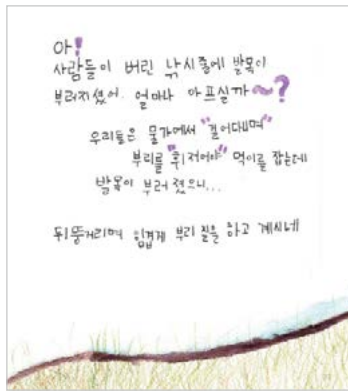 아!
사람들이 버린 낚시줄에 발목이
부러지셨어. 얼마나 아프실까~?
우리들은 물가에서 "걸어다니며"
부리를 "휘저어야" 먹이를 잡는데
발목이 부러졌으니...
뒤뚱거리며 힘겹게 부리 질을 하고 계시네